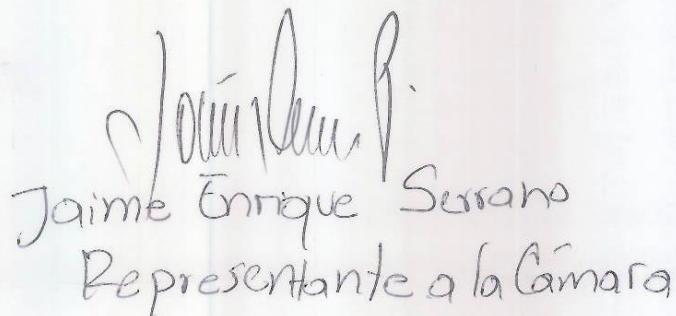 Jaime Enrique Serrano
Representante a la Cámara